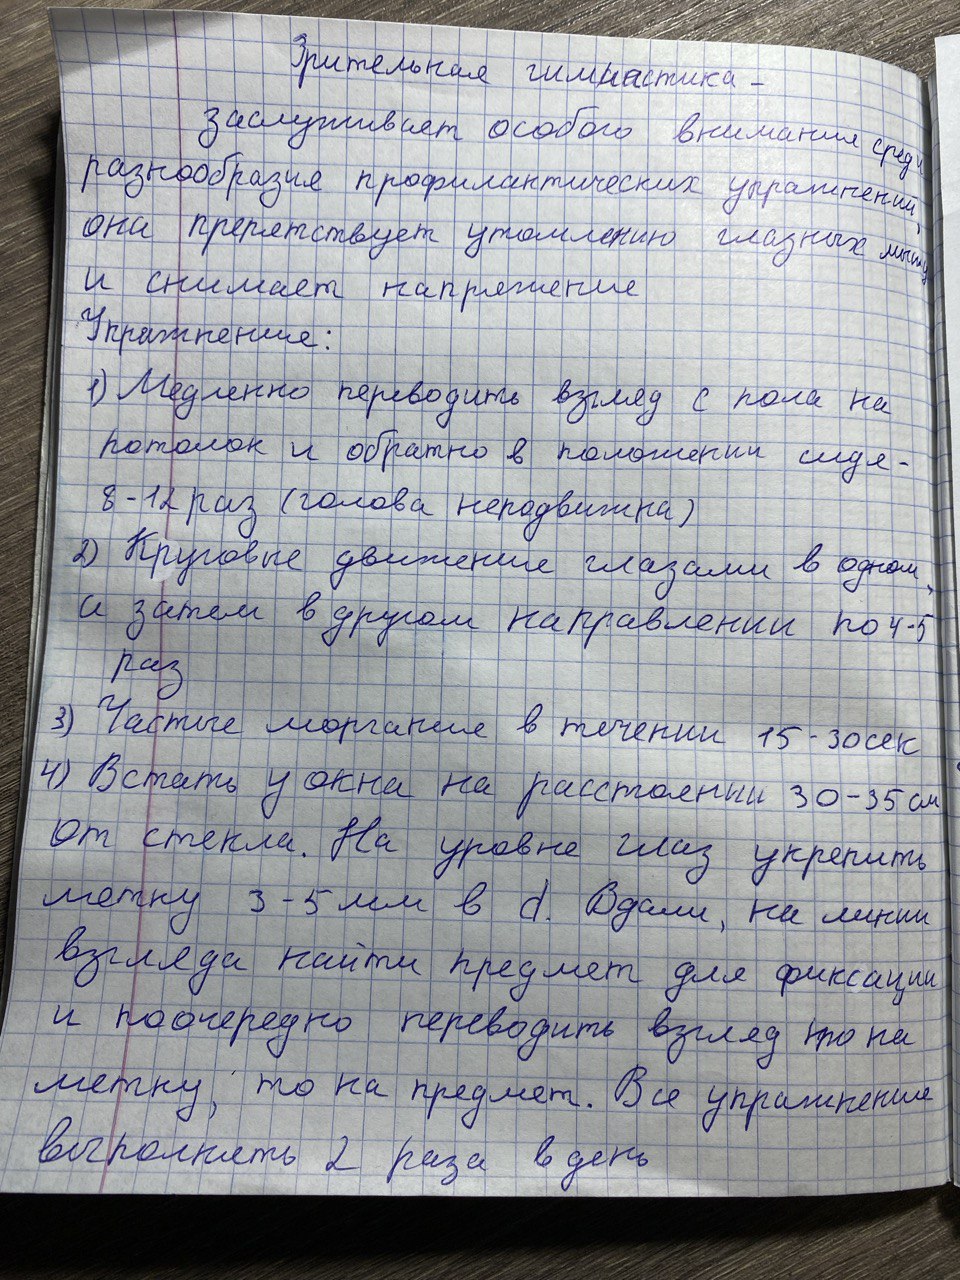 Зрительная гимнастика -
заслуживает особого внимания среди
разнообразия профилактических упражнений,
она препятствует утомлению глазных мышц
и снимает напряжение
Упражнение:
1) Медленно переводить взгляд с пола на
потолок и обратно в положении сидя -
8-12 раз (голова неподвижна)
2) Круговые движение глазами в одном,
а затем в другом направлении по 4-5
раз
3) Частые моргание в течении 15-30сек
4) Встать у окна на расстоянии 30-35 см
от стекла. На уровне глаз укрепить
метку 3-5 мм в d. Вдали, на линии
взгляда найти предмет для фиксации
и поочередно переводить взгляд то на
метку, то на предмет. Все упражнение
выполнять 2 раза в день